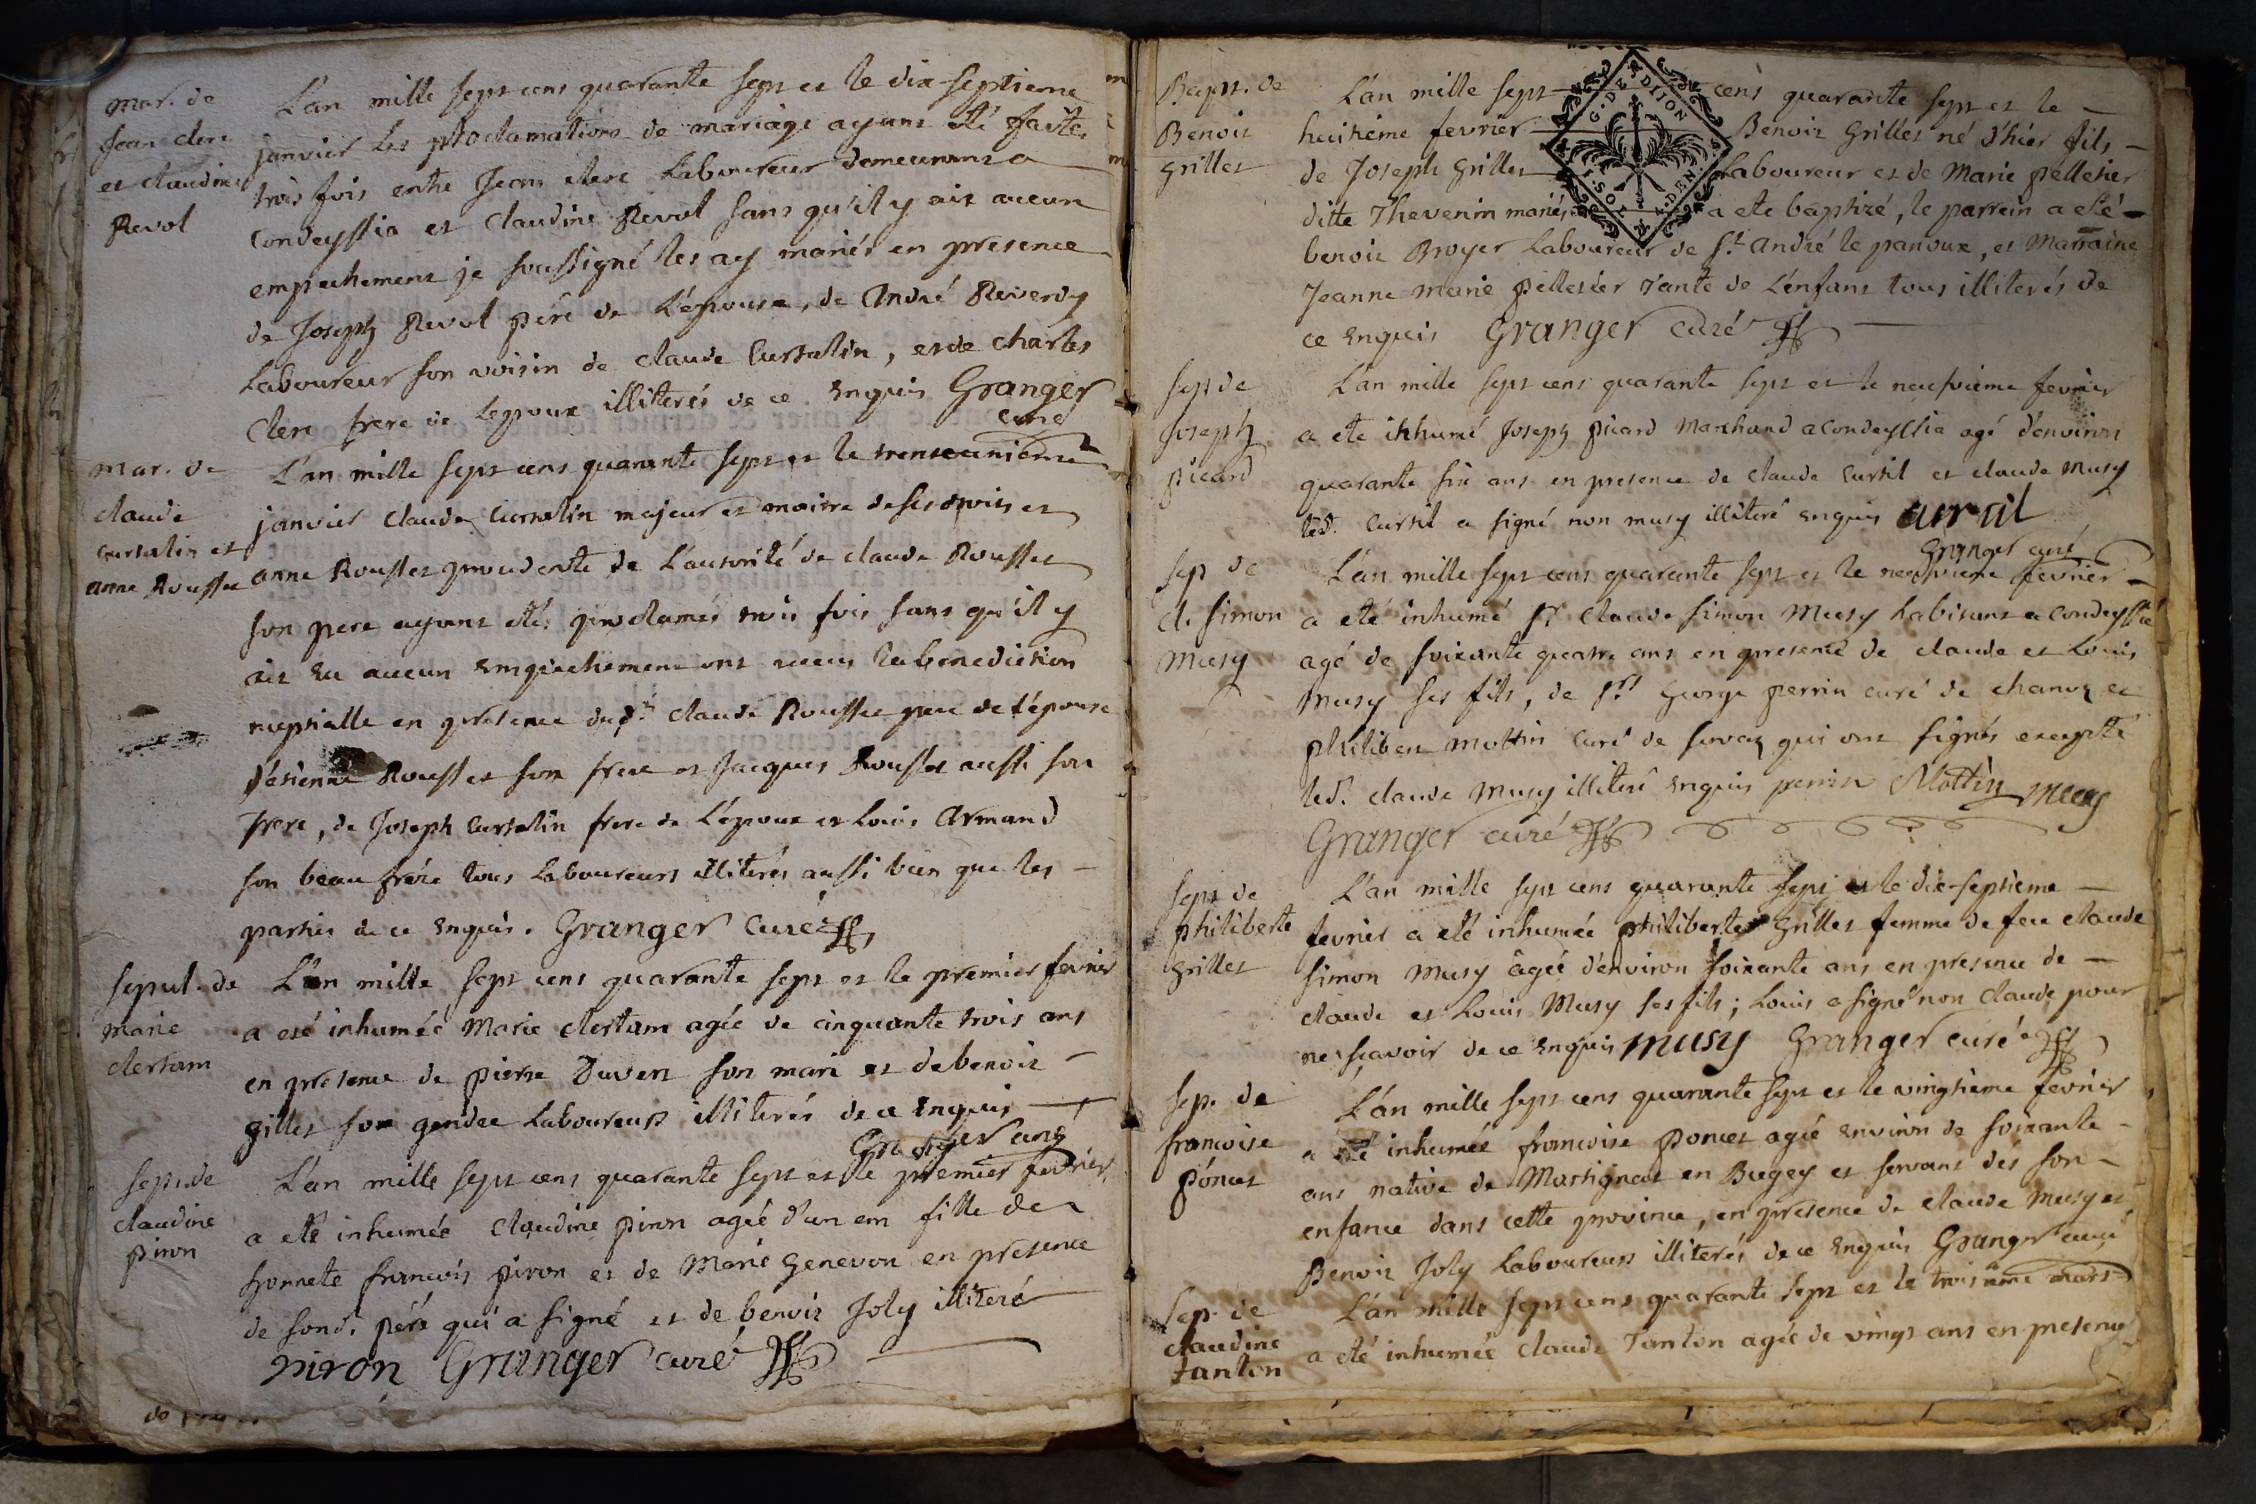 mar. de
Jean clerc
et claudine
Revol
L'an mille sept cens quarante sept et le dix-septieme
janvier les proclamations de mariage ayant eté faites
trois fois entre Jean clerc Laboureur demeurant a
Condeyssia et Claudine Revol sans qu'il y ait aucun
empechement je soussigné les ay mariés en presence
de Joseph Revol pére de L'épouse, de André Reverdy
Laboureur son voisin de claude Curtalin, et de charles
Clerc frere de lepoux illiterés de ce Enquis Granger
curé
mar. de
claude
curtalin et
anne Rousset
L'an mille sept cens quarante sept et le trente unieme
janvier claude Curtalin majeur et maitre de ses droits et
anne Rousset procedente de L'autorité de claude Rousset
son pere ayant etés proclamés trois fois sans qu'il y
ait eu aucun Empechement ont recus la benediction
nuptialle en presence dud.t claude Rousset pere de l'épouse
d'etienne Rousset son frere et Jacques Rousset aussi son
frere, de Joseph Curtalin frere de L'époux et Louis Armand
son beau frére tous Laboureurs illiterés aussi bien que les
parties de ce Enquis. Granger Curé
sepul. de
marie
clertam
L'an mille sept cens quarante sept et le premier fevrier
a eté inhumée Marie clertam agée de cinquante trois ans
en presence de pierre Duvert son mari et de benoit
gillet son gendre Laboureurs illiterés de ce Enquis
Granger curé
sept. de
claudine
piron
L'an mille sept cens quarante sept et le premier fevrier
a eté inhumée Claudine piron agée d'un an fille de
honnete francois piron et de Marie Genevon en presence
de sond. pére qui a signé et de benoit Joly illiteré
piron Granger curé
Bapt. de
Benoit
grillet
L'an mille sept cens quarante sept et le
huitiéme fevrier Benoit Grillet né d'hier fils
de Joseph Grillet Laboureur et de Marie pelletier
ditte Thevenin mariés a ete baptizé, le parrein a eté
benoit Broyer Laboureur de St. andré le panoux, et Marraine
Jeanne marie pelletier Tante de L'enfant tous illiterés de
ce Enquis Granger Curé
G. DE DIJON
sep de
Joseph
picard
L'an mille sept cens quarante sept et le neufvieme fevrier
a ete inhumé Joseph picard Marchand a Condeyssia agé d'environ
quarante six ans en presence de claude Curtil et claude Musy
led. Curtil a signé non musy illiteré Enquis curtil
Granger curé
sep de
cl. simon
musy
L'an mille sept cens quarante sept et le neufvieme fevrier
a eté inhumé Sr. Claude simon Musy habitant a Condeyssia
agé de soixante quatre ans en presence de claude et Louis
Musy ses fils, de Srs. George perrin curé de chanoz et
philibert mottin Curé de servaz qui ont signés excepté
led. claude Musy illiteré Enquis perrin Mottin musy
Granger curé
sept de
philiberte
grillet
L'an mille sept cens quarante sept et le dix-septieme
fevrier a eté inhumée philiberte Grillet femme de feu claude
simon Musy âgée d'environ soixante ans en presence de
claude et Louis Musy ses fils; Louis a signé non Claude pour
ne scavoir de ce Enquis musy Granger curé
sep. de
francoise
póncet
L'an mille sept cens quarante sept et le vingtieme fevrier
a eté inhumée francoise poncet agée Environ de soixante
ans native de Martignat en Bugey et servant dés son
enfance dans cette province, en presence de claude Musy et
Benoit Joly Laboureurs illiterés de ce Enquis Granger curé
sep. de
claudine
tanton
L'an mille sept cens quarante sept et le troisiéme mars
a eté inhumée claude Tanton agée de vingt ans en presence